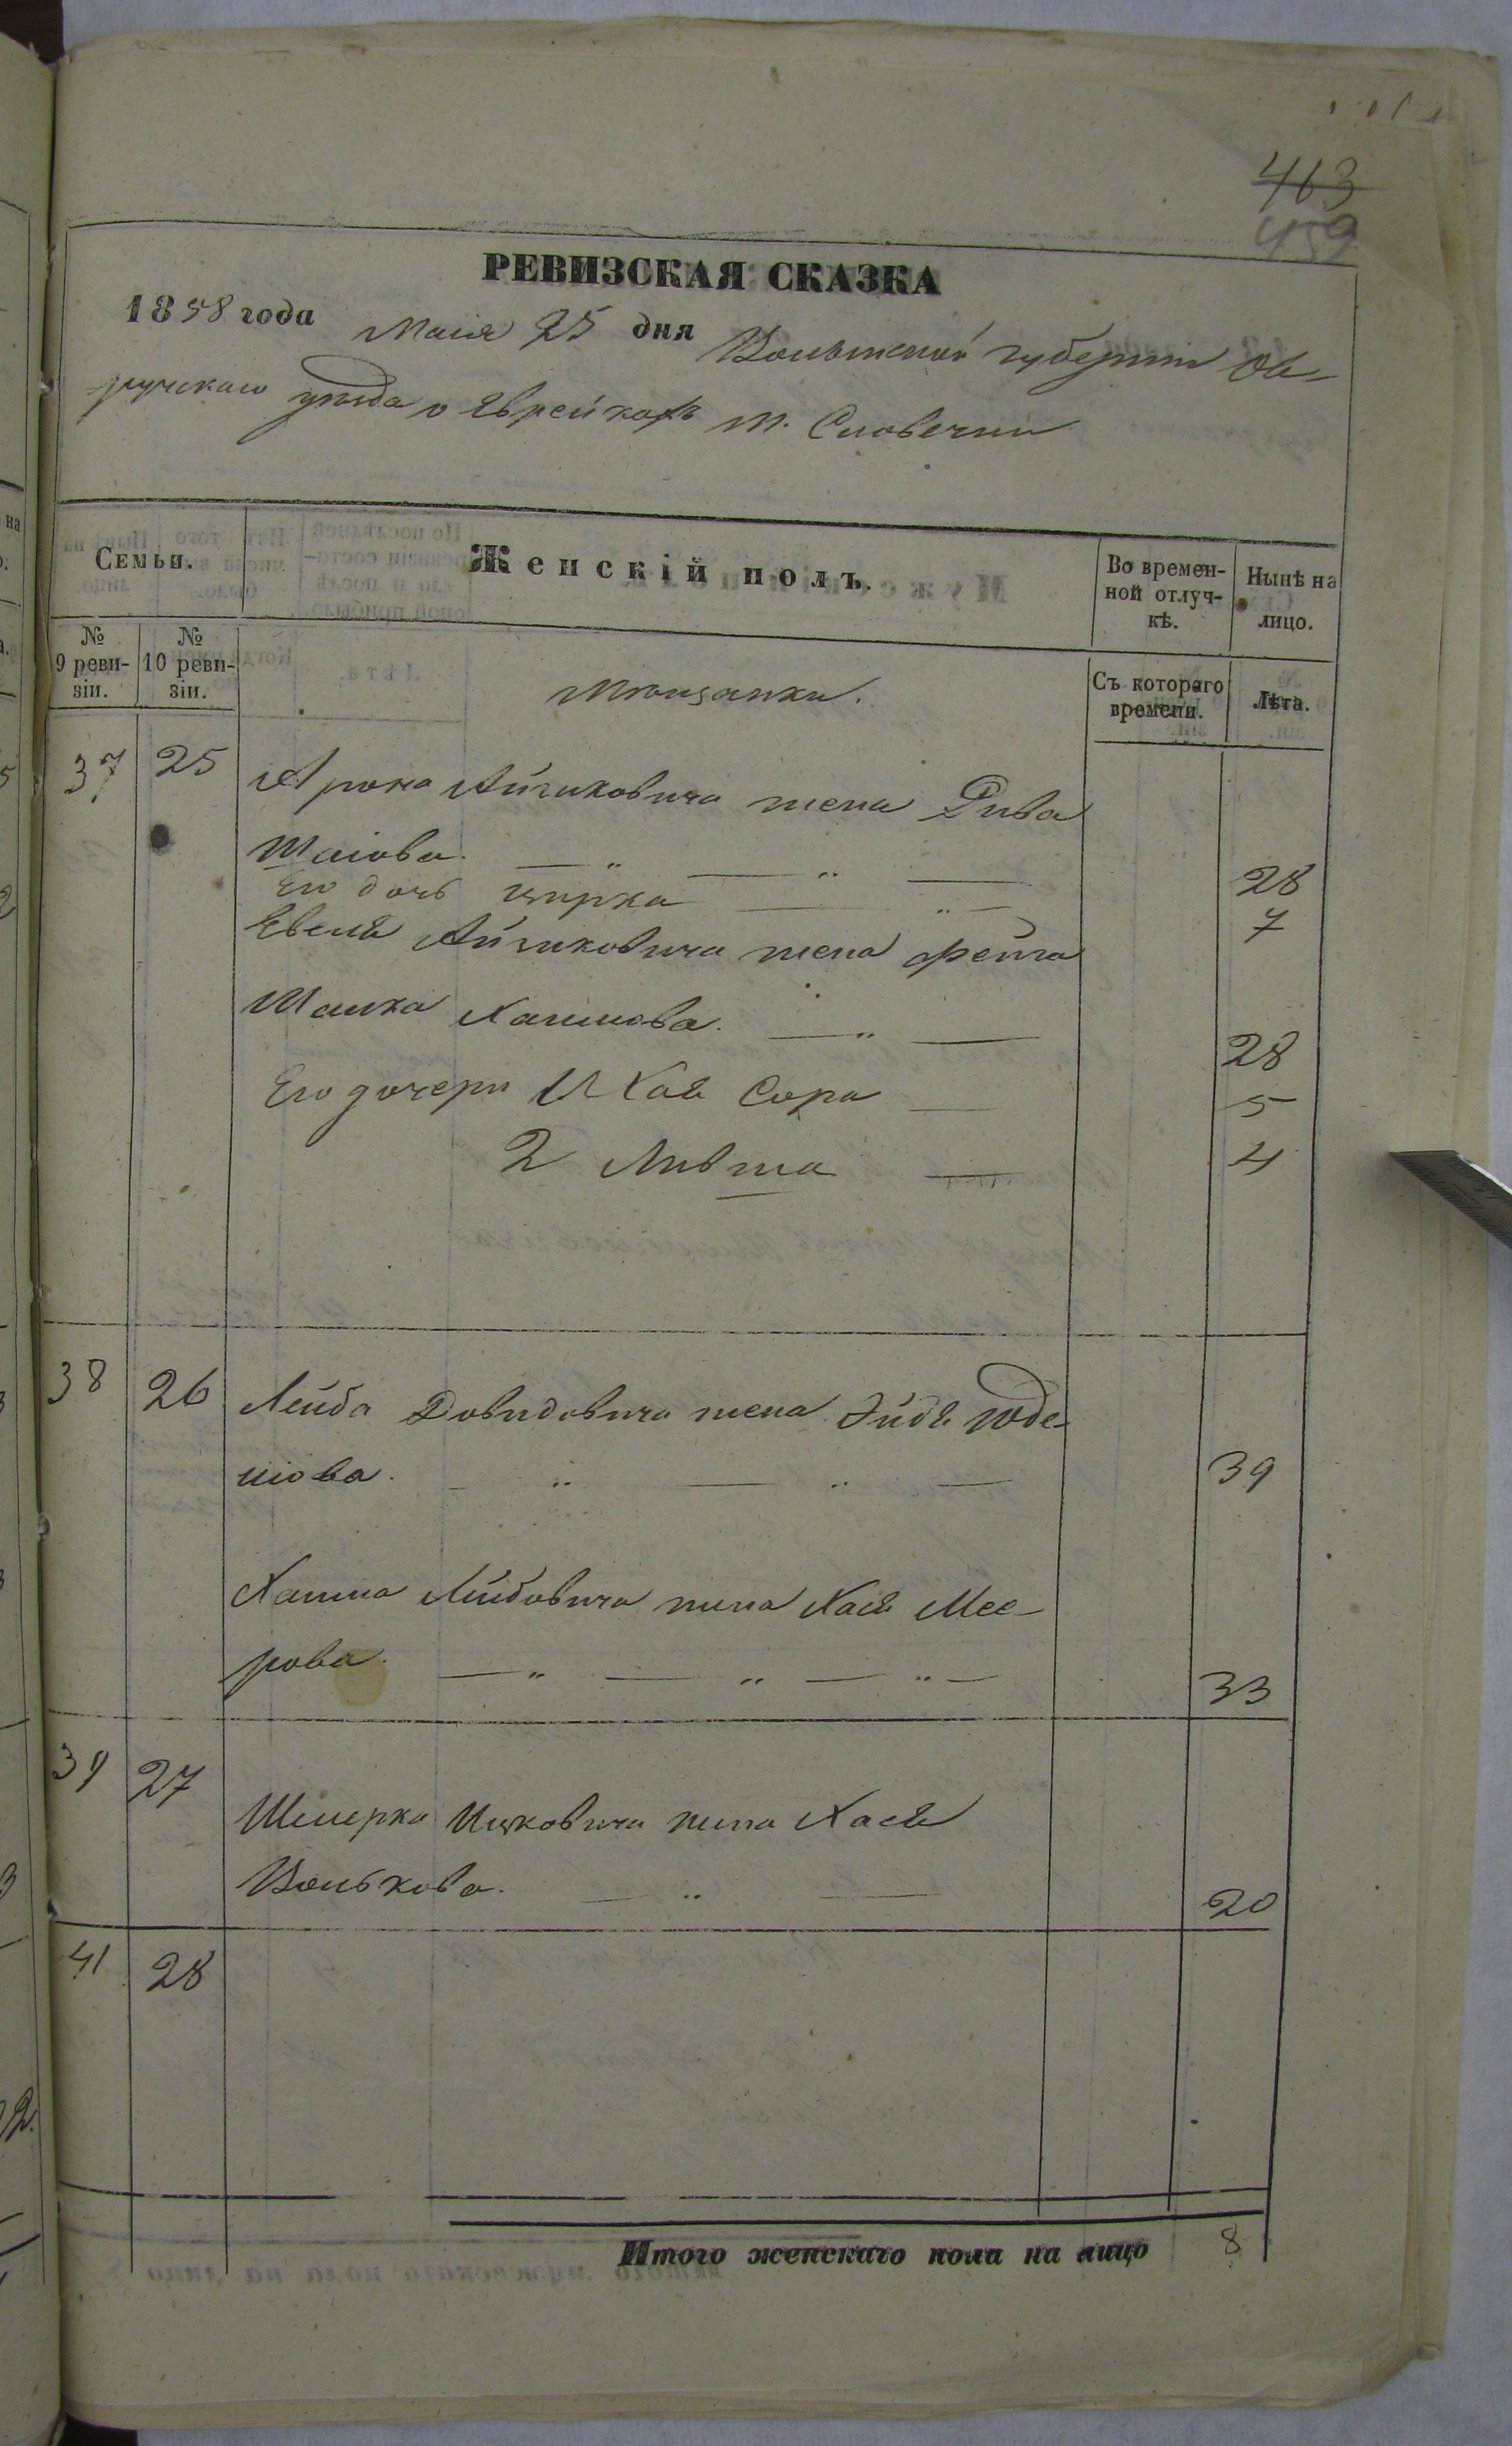 463
459
РЕВИЗСКАЯ СКАЗКА
1858 года Маія 25 дня Волынской губерніи Ов-
ручскаго уѣзда о Еврейкахъ м. Словечни
Семьи. Женскій полъ. Во времен-ной отлуч-кѣ. Нынѣ на лицо.
№ 9 реви-зіи. № 10 реви-зіи. Мѣщанки. Съ котораго времени. Лѣта.
37 25 Арона Айзиковича жена Рива
Шаіова. 28
Его дочь Цирка 7
Евеля Айзиковича жена Фейга
Хаимова. 28
Его дочери 1 Хая Сора 5
2 Лив 4
38 26 Лейба Довидовича жена Эйдя Юде-
ліова. 39
Хаима Лейбовича жена Хася Мее-
рова. 33
39 27 Шмерка Ицковича жена Хася
Волькова. 20
41 28
Итого женскаго пола на лицо 8